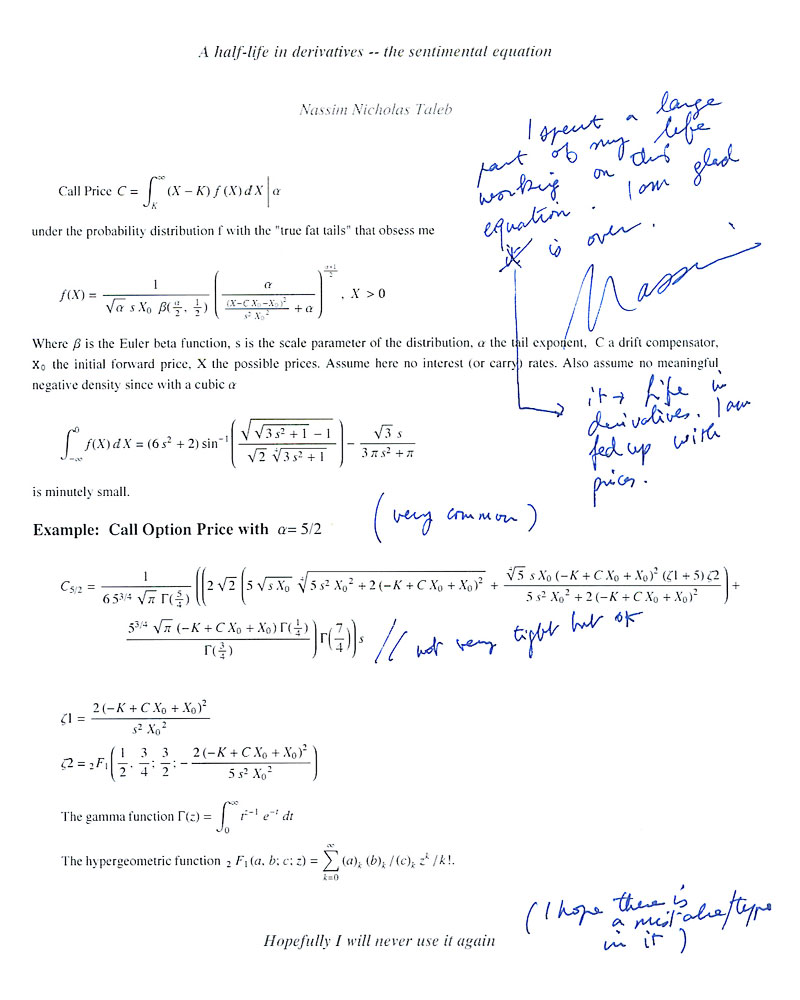 A half-life in derivatives -- the sentimental equation
Nassim Nicholas Taleb
I spent a large
part of my life
working on this
equation. I am glad
it is over.
Nassim
Call Price C = ∫_K^∞ (X − K) f(X) dX | α
under the probability distribution f with the "true fat tails" that obsess me
f(X) = 1/(√α s X₀ β(α/2, 1/2)) (α/((X−C X₀−X₀)²/(s² X₀²) + α))^((α+1)/2), X > 0
Where β is the Euler beta function, s is the scale parameter of the distribution, α the tail exponent, C a drift compensator,
X₀ the initial forward price, X the possible prices. Assume here no interest (or carry) rates. Also assume no meaningful
negative density since with a cubic α
it → life in
derivatives. I am
fed up with
prices.
∫_−∞^0 f(X) dX = (6 s² + 2) sin⁻¹(√(√(3 s² + 1) − 1)/(√2 ∜(3 s² + 1))) − √3 s/(3 π s² + π)
is minutely small.
Example: Call Option Price with α= 5/2
(very common)
C₅/₂ = 1/(6 5^(3/4) √π Γ(5/4)) ((2 √2 (5 √(s X₀) ∜(5 s² X₀² + 2 (−K + C X₀ + X₀)²) + ∜5 s X₀ (−K + C X₀ + X₀)² (ζ1 + 5) ζ2/(5 s² X₀² + 2 (−K + C X₀ + X₀)²)) +
5^(3/4) √π (−K + C X₀ + X₀) Γ(1/4)/Γ(3/4)) Γ(7/4)) s
// not very tight but ok
ζ1 = 2 (−K + C X₀ + X₀)²/(s² X₀²)
ζ2 = ₂F₁(1/2, 3/4; 3/2; −2 (−K + C X₀ + X₀)²/(5 s² X₀²))
The gamma function Γ(z) = ∫_0^∞ t^(z−1) e^(−t) dt
The hypergeometric function ₂F₁(a, b; c; z) = ∑_(k=0)^∞ (a)ₖ (b)ₖ /(c)ₖ z^k / k!.
(I hope there is
a mistake/typo
in it)
Hopefully I will never use it again